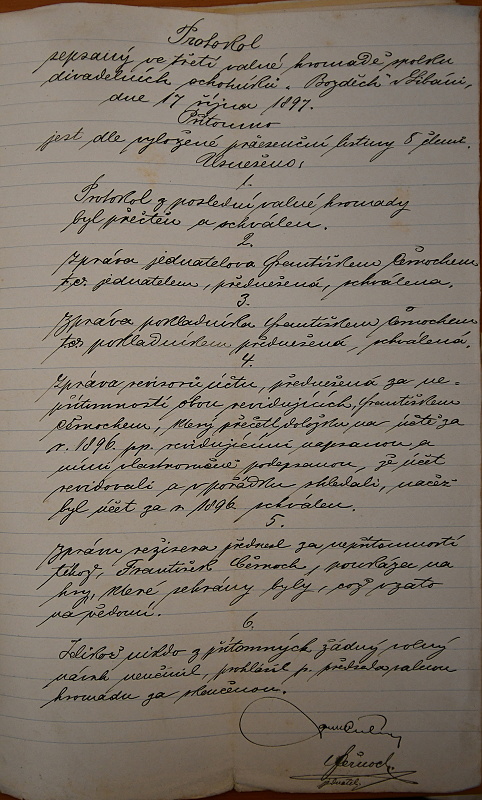 Protokol
sepsaný ve třetí valné hromadě spolku
divadelních ochotníků „Bozděch" v Libáni,
dne 17 října 1897.
Přítomno
jest dle vyložené præsenční listiny 8 členů.
Usnešeno:
1.
Protokol z poslední valné hromady
byl přečten a schválen.
2.
Zpráva jednatelova Františkem Černochem
t. č. jednatelem, přednešená, schválena.
3.
Zpráva pokladníka Františkem Černochem
t. č. pokladníkem přednešená, schválená.
4.
Zpráva revisorů účtu, přednešená za ne-
přítomnosti obou revidujících, Františkem
Černochem, který přečetl doložku na účtě za
r. 1896 pp. revidujícími napsanou a
nimi vlastnoručně podepsanou, že účet
revidovali a v pořádku shledali, načež
byl účet za r. 1896 schválen.
5.
Zprávu režisera přednesl za nepřítomnosti
téhož, František Černoch, poukázav na
hry, které sehrány byly, což vzato
na vědomí.
6.
Jelikož nikdo z přítomných žádný volný
návrh neučinil, prohlásil p. předseda valnou
hromadu za skončenou.
Černoch.
jednatel.